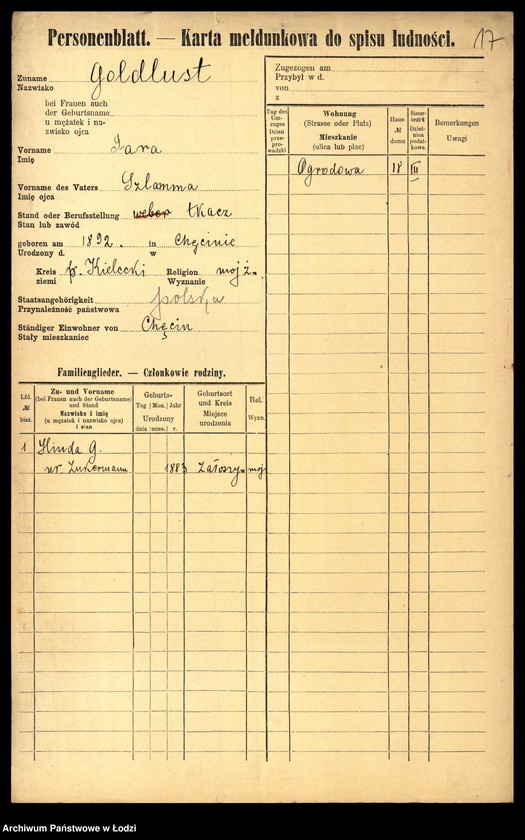 Personenblatt. — Karta meldunkowa do spisu ludności. 17
Zuname Goldlust
Nazwisko
bei Frauen auch
der Geburtsname
u mężatek i na-
zwisko ojca
Vorname Jara
Imię
Vorname des Vaters Szlamma
Imię ojca
Stand oder Berufsstellung weber tkacz
Stan lub zawód
geboren am 1892. in Chęcinie
Urodzony d. w
Kreis p. Kielecki Religion mojż.
ziemi Wyznanie
Staatsangehörigkeit polska
Przynależność państwowa
Ständiger Einwohner von Chęcin
Stały mieszkaniec
Familienglieder. — Członkowie rodziny.
Lfd. № bież.
Zu- und Vorname
(bei Frauen auch der Geburtsname)
und Stand
Nazwisko i imię
(u mężatek i nazwisko ojca)
i stan
Geburts-
Tag Mon. Jahr
Urodzony
dnia mies. r.
Geburtsort
und Kreis
Miejsce
urodzenia
Rel.
Wyzn.
1 Hinda G.
ur. Zukermann 1883 Załoszyn moj
Zugezogen am
Przybył w d.
von
z
Tag des
Um-
zuges
Dzień
prze-
prowadzki
Wohnung
(Strasse oder Platz)
Mieszkanie
(ulica lub plac)
Haus-
№
domu
Steuer-
bezirk
Dziel-
nica
podat-
kowa
Bemerkungen
Uwagi
Ogrodowa 18 III
Archiwum Państwowe w Łodzi